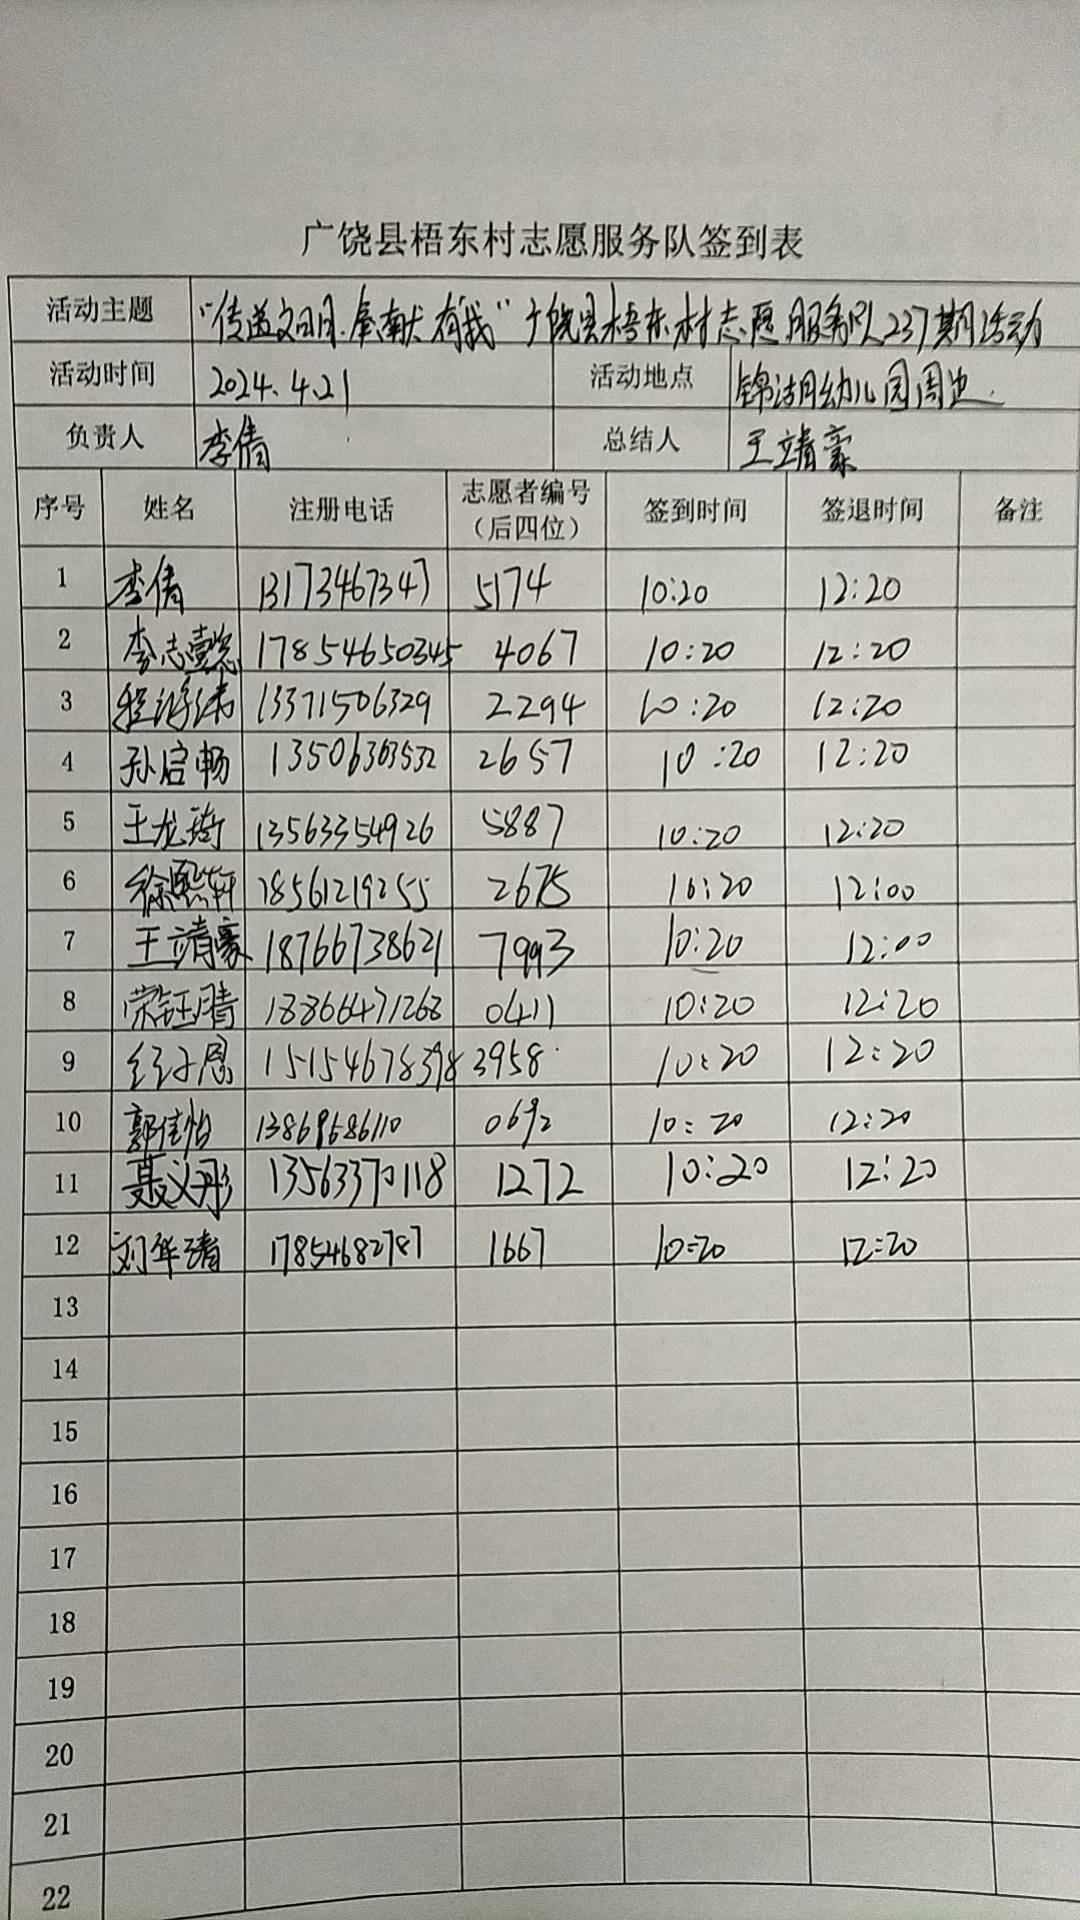 广饶县梧东村志愿服务队签到表
活动主题 “传递文明.奉献有我”广饶县梧东村志愿服务队237期活动
活动时间 2024.4.21 活动地点 锦湖幼儿园周边
负责人 李倩 总结人 王靖豪
序号 姓名 注册电话 志愿者编号（后四位） 签到时间 签退时间 备注
1 李倩 13173467347 5174 10:20 12:20
2 李志懿 17854650345 4067 10:20 12:20
3 13371506329 2294 10:20 12:20
4 孙启畅 13506363532 2657 10:20 12:20
5 王龙琦 13563354926 5887 10:20 12:20
6 徐熙轩 18561219255 2675 10:20 12:00
7 王靖豪 18766738621 7993 10:20 12:00
8 荣钰晴 18866471268 0411 10:20 12:20
9 3958 10:20 12:20
10 郭佳怡 13869686110 0692 10:20 12:20
11 聂义彤 13563370118 1272 10:20 12:20
12 刘华清 17854682787 1667 10:20 12:20
13
14
15
16
17
18
19
20
21
22